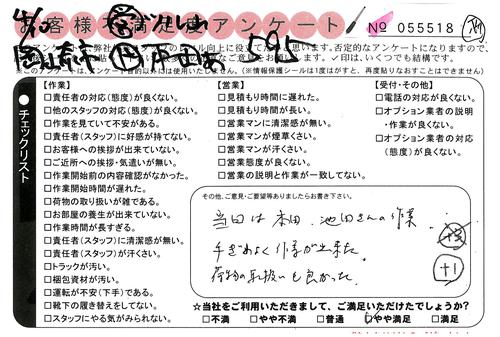 4/10
お客様満足度アンケート
№ 055518
595
■チェックリスト
【作業】
□責任者の対応(態度)が良くない。
□他のスタッフの対応(態度)が良くない。
□作業を見ていて不安がある。
□責任者(スタッフ)に好感が持てない。
□お客様への挨拶が出来ていない。
□ご近所への挨拶・気遣いが無い。
□作業開始前の内容確認がなかった。
□作業開始時間が遅れた。
□荷物の取り扱いが雑である。
□お部屋の養生が出来ていない。
□作業時間が長すぎる。
□責任者(スタッフ)に清潔感が無い。
□責任者(スタッフ)が汗くさい。
□トラックが汚い。
□梱包資材が汚い。
□運転が不安(下手)である。
□靴下の履き替えをしてない。
□スタッフにやる気がみられない。
【営業】
□見積もり時間に遅れた。
□見積もり時間が長い。
□営業マンに清潔感が無い。
□営業マンが煙草くさい。
□営業マンが汗くさい。
□営業態度が良くない。
□営業の説明と作業が一致してない。
【受付・その他】
□電話の対応が良くない。
□オプション業者の説明・作業が良くない。
□オプション業者の対応(態度)が良くない。
その他、ご意見・ご要望等ありましたらお書き下さい。
当日は本田、池田さんの作業
手ぎわよく作業が出来た。
荷物の取扱いも良かった。
+1
☆当社をご利用いただきまして、ご満足いただけたでしょうか?
□不満 □やや不満 □普通 □やや満足 □満足